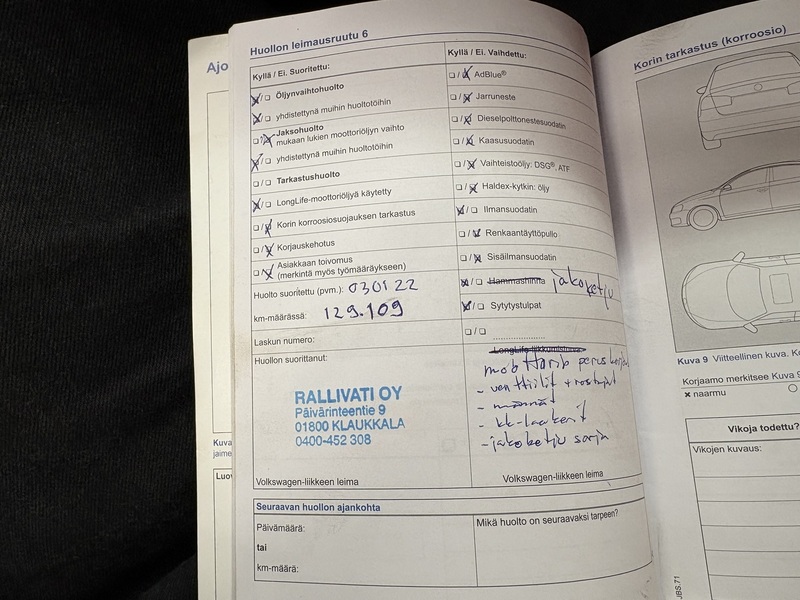 Ajo
Huollon leimausruutu 6
Kyllä / Ei. Suoritettu:
Öljynvaihtohuolto
yhdistettynä muihin huoltotöihin
Jaksohuolto
mukaan lukien moottoriöljyn vaihto
yhdistettynä muihin huoltotöihin
Tarkastushuolto
LongLife-moottoriöljyä käytetty
Korin korroosiosuojauksen tarkastus
Korjauskehotus
Asiakkaan toivomus
(merkintä myös työmääräykseen)
Huolto suoritettu (pvm.): 030122
km-määrässä: 129.109
Laskun numero:
Huollon suorittanut:
RALLIVATI OY
Päivärinteentie 9
01800 KLAUKKALA
0400-452 308
Volkswagen-liikkeen leima
Kyllä / Ei. Vaihdettu:
AdBlue®
Jarruneste
Dieselpolttonestesuodatin
Kaasusuodatin
Vaihteistoöljy: DSG®, ATF
Haldex-kytkin: öljy
Ilmansuodatin
Renkaantäyttöpullo
Sisäilmansuodatin
Hammashihna jakoketju
Sytytystulpat
moottorin perus
- venttiilit +
- männät
- kk-laakerit
- jakoketju sarja
Volkswagen-liikkeen leima
Seuraavan huollon ajankohta
Päivämäärä:
tai
km-määrä:
Mikä huolto on seuraavaksi tarpeen?
Kuva
jaime
Luov
Korin tarkastus (korroosio)
Kuva 9 Viitteellinen kuva. Ko
Korjaamo merkitsee Kuva 9
× naarmu
Vikoja todettu?
Vikojen kuvaus:
JBS.71